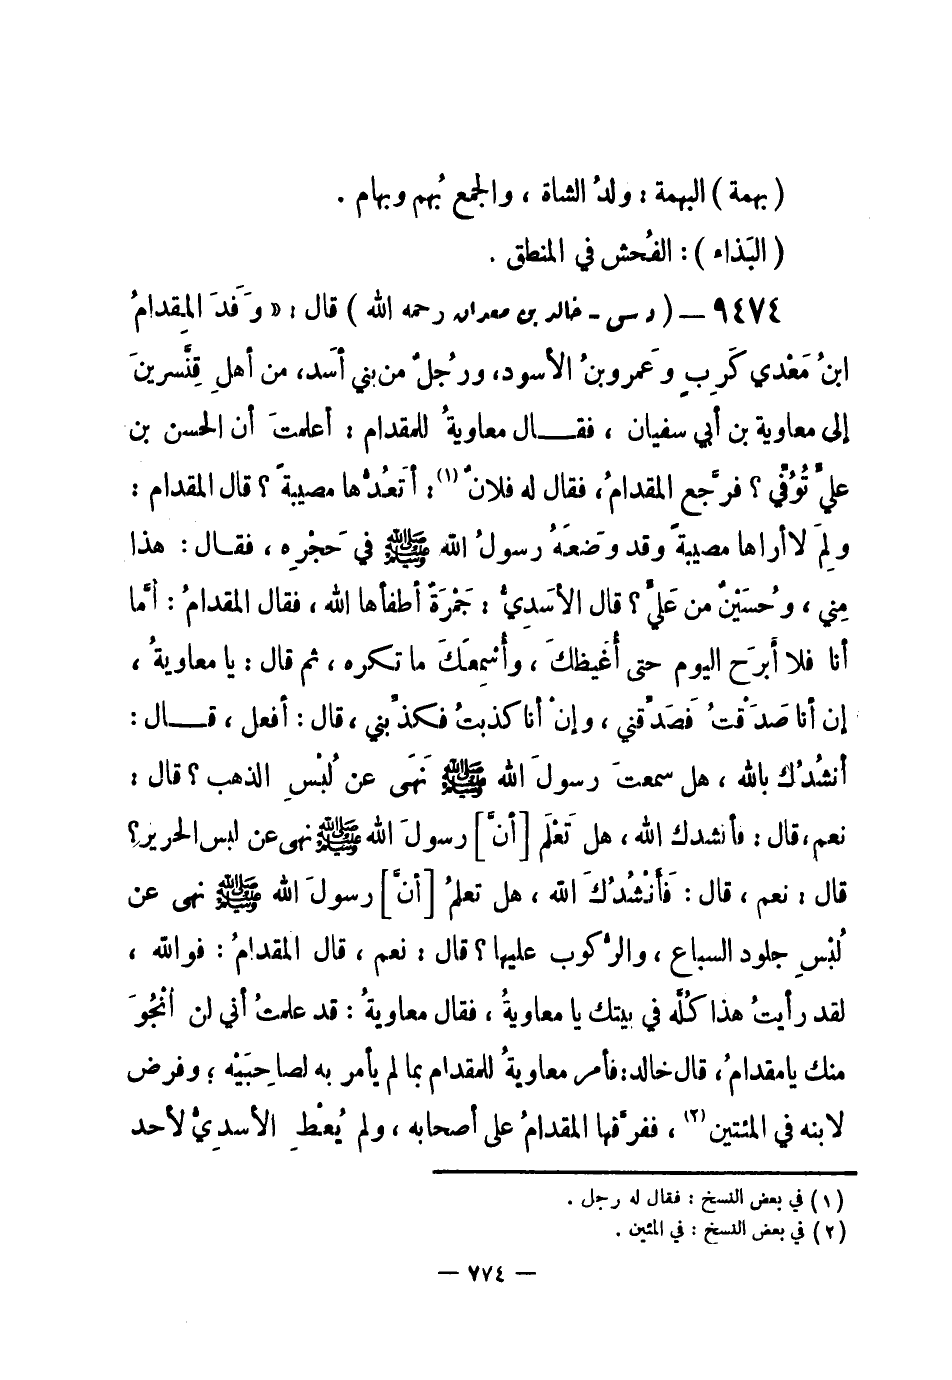 ( بهمة ) البهمة : ولدُ الشاة ، والجمع بُهم وبهام .
( البَذاء ) : الفُحش في المنطق .
٩٤٧٤ – ( د س - خالد بن معدان رحمه الله ) قال : « وَفَدَ المِقدامُ
ابنُ مَعْدي كَرِبٍ وَعمروبنُ الأسود، ورجُلٌ من بني أسَد، من أهلِ قِنَّسرينَ
إلى معاوية بن أبي سفيان ، فقـــال معاويةُ للمقدام : أعلمتَ أن الحسن بن
عليٍّ تُوُفِّي ؟ فرَّجع المقدامُ، فقال له فلانٌ (١): أتَعدُّها مصيبةً ؟ قال المقدام :
ولِمَ لا أراها مصيبةً وقد وَضعَهُ رسولُ الله ﷺ في حَجْرِه ، فقــال : هذا
مِني ، وحُسَيْنٌ من عَليٍّ ؟ قال الأسَدِيُّ : جَمْرَةٌ أطفأها الله ، فقال المقدامُ : أمَّا
أنا فلا أبرَح اليوم حتى أُغَيظكَ ، وأُسْمِعَكَ ما تكره ، ثم قال : يا معاويةُ ،
إن أنا صَدَقتُ فَصَدِّقني ، وإنْ أنا كذبتُ فكذِّبني ، قال : أفعل ، قــــال :
أنشُدُك بالله ، هل سمعتَ رسولَ الله ﷺ نَهَى عن لُبْسِ الذهب ؟ قال :
نعم، قال : فأنشدك الله ، هل تَعْلَم [أنَّ] رسولَ الله ﷺ نهى عن لبس الحرير؟
قال : نعم ، قال : فَأَنْشُدُكَ الله ، هل تعلمُ [أنَّ] رسولَ الله ﷺ نهى عن
لُبْسِ جلود السباع ، والرُّكوب عليها ؟ قال : نعم ، قال المقدامُ : فوالله ،
لقد رأيتُ هذا كُلَّه في بيتك يا معاويةُ ، فقال معاويةُ : قد علمتُ أني لن أنْجُوَ
منك يا مقدامُ ، قال خالد: فأمر معاويةُ للمقدام بما لم يأمر به لصاحِبَيْه ؛ وفرض
لابنه في المئتين (٢) ، ففرَّقها المقدامُ على أصحابه ، ولم يُعْطِ الأسديُّ لأحد
(١) في بعض النسخ : فقال له رجل .
(٢) في بعض النسخ : في المئين .
— ٧٧٤ —